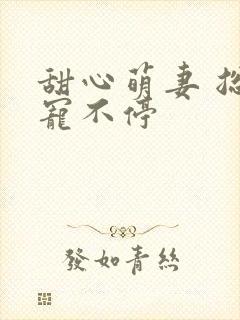 甜心萌妻
寵不停
發如青絲